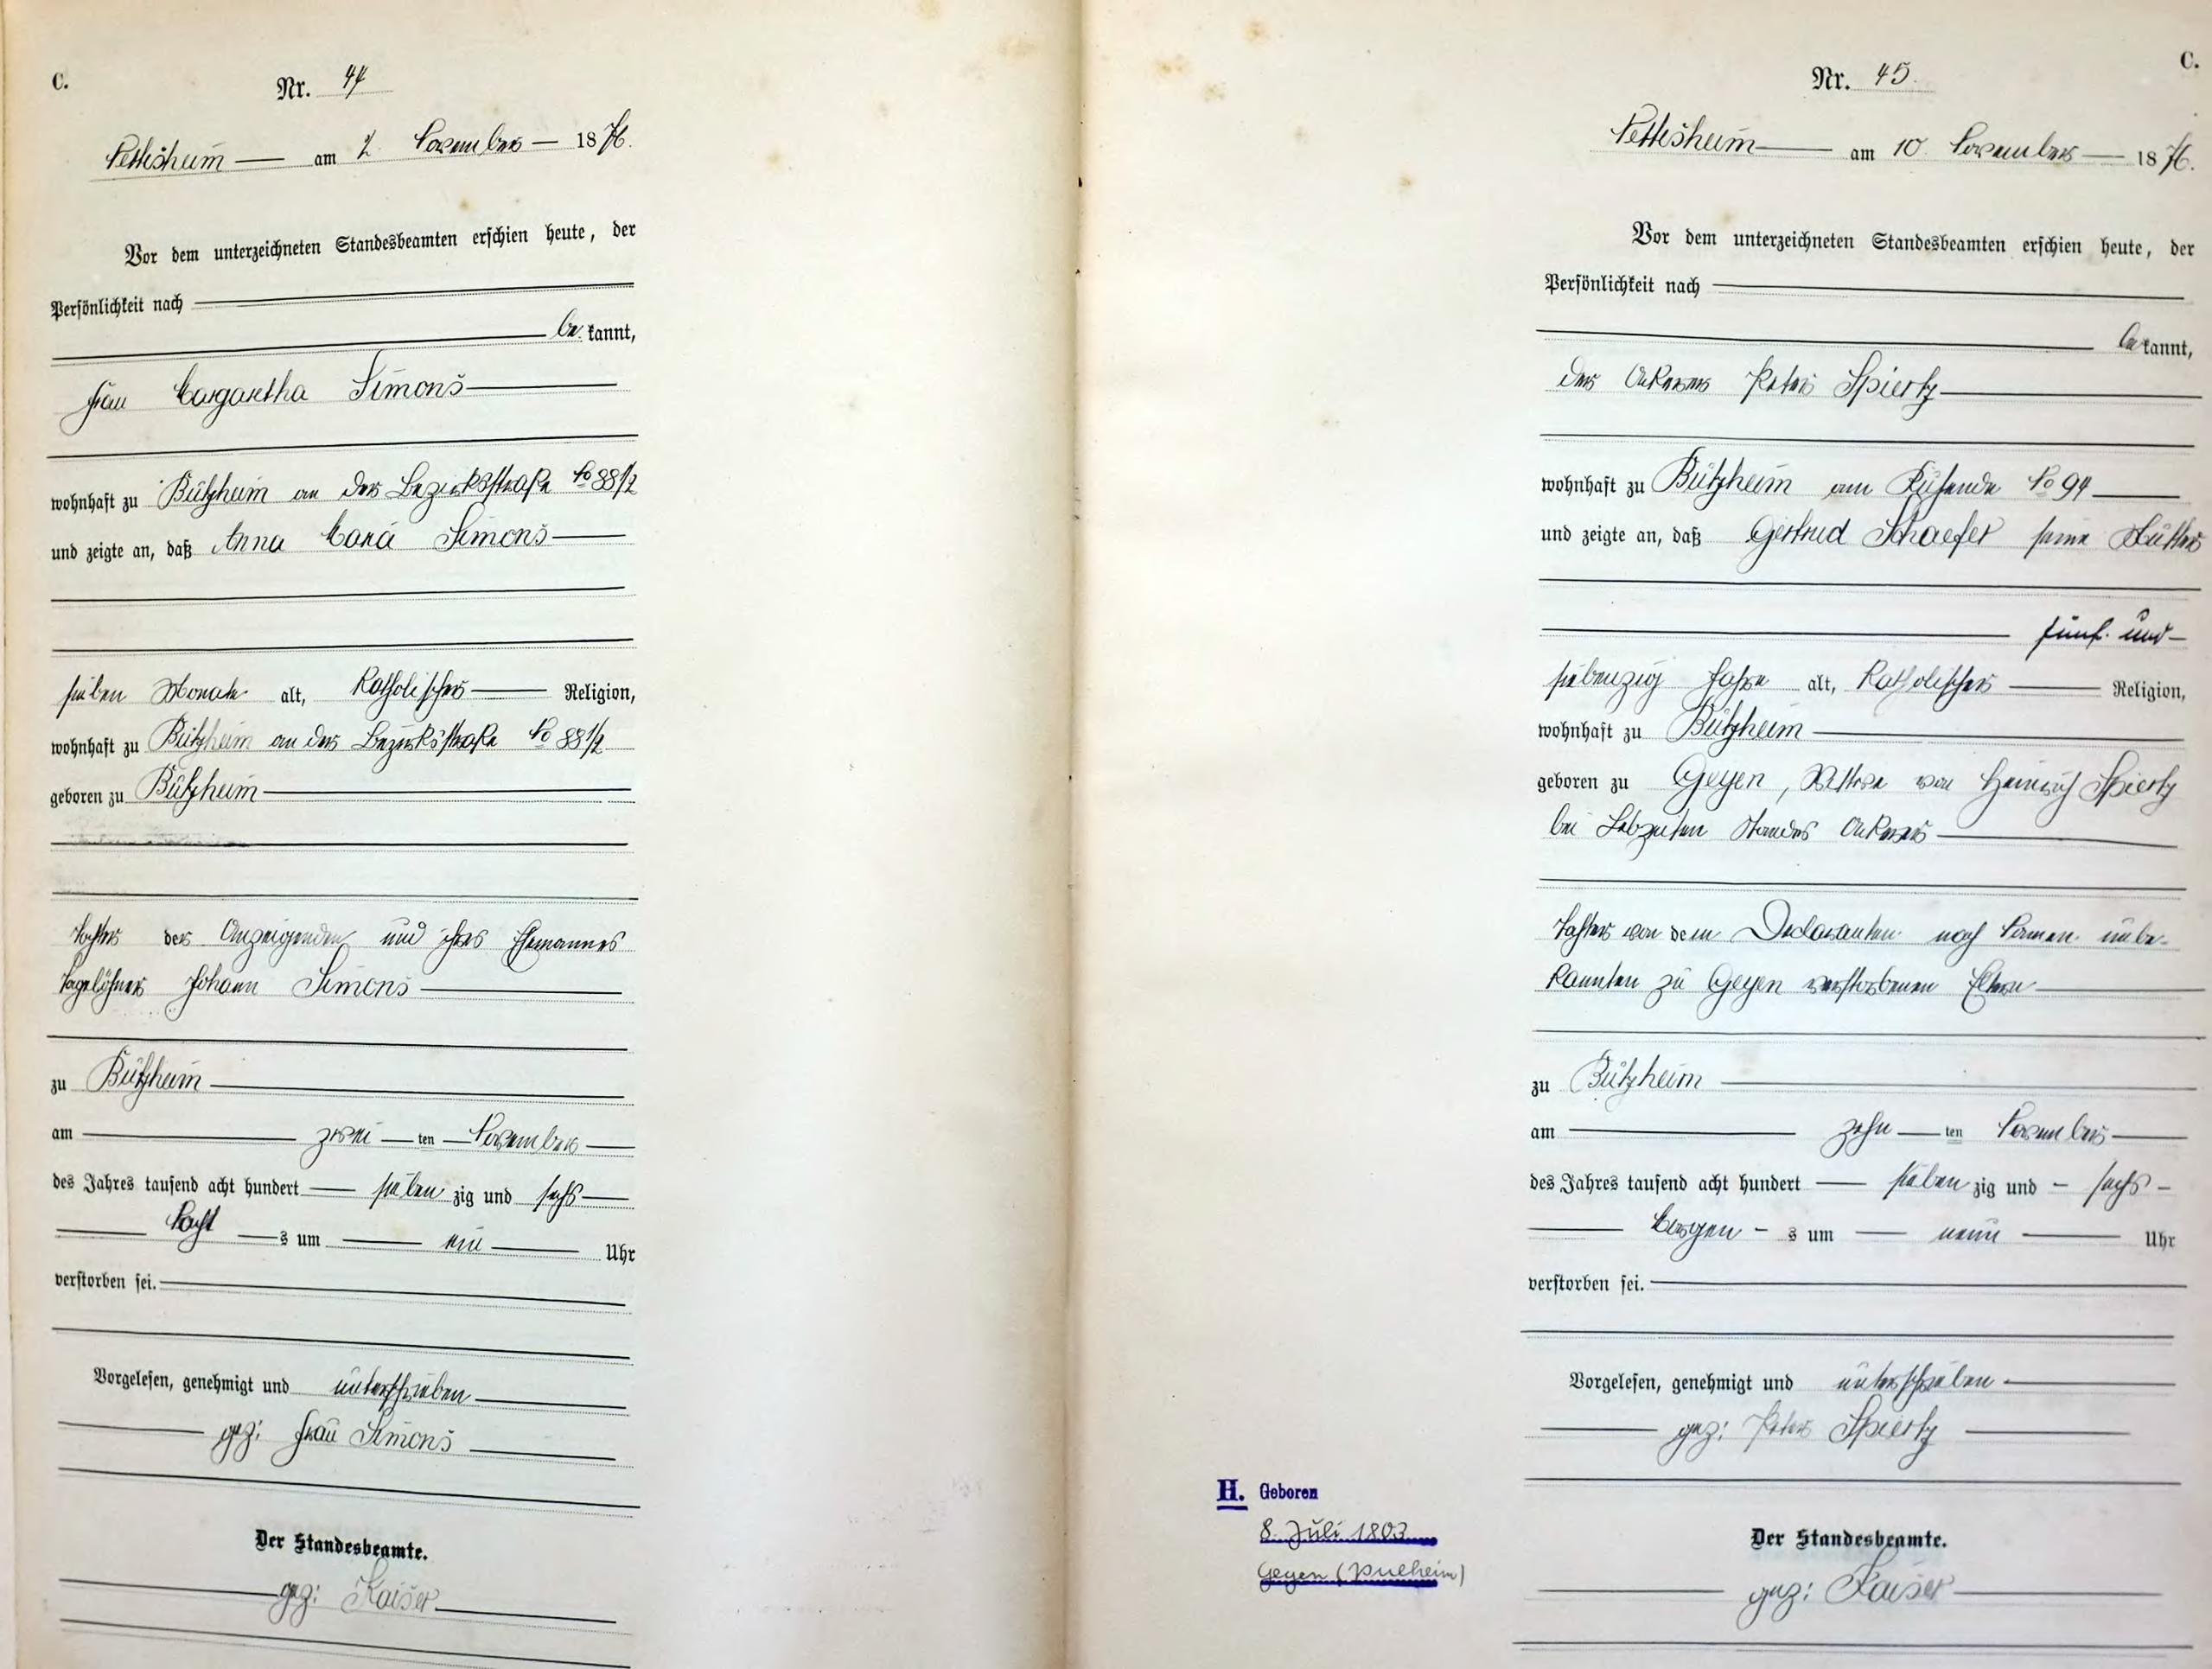 C.
Nr. 44
Nettesheim am 2. November 1876.
Vor dem unterzeichneten Standesbeamten erschien heute, der
Persönlichkeit nach
be kannt,
Frau Margaretha Simons
wohnhaft zu Bützheim an der Bezirksstraße No 88 1/2
und zeigte an, daß Anna Maria Simons
sieben Monate alt, Katholischer Religion,
wohnhaft zu Bützheim an der Bezirksstraße No 88 1/2
geboren zu Bützheim
Tochter der Anzeigenden und ihres Ehemannes
Tagelöhner Johann Simons
zu Bützheim
am zwei ten November
des Jahres tausend acht hundert sieben zig und sechs
Nacht s um ein Uhr
verstorben sei.
Vorgelesen, genehmigt und unterschrieben
gez: Frau Simons
Der Standesbeamte.
gez: Kaiser
C.
Nr. 45.
Nettesheim am 10. November 1876.
Vor dem unterzeichneten Standesbeamten erschien heute, der
Persönlichkeit nach
be kannt,
der Ackerer Peter Spiertz
wohnhaft zu Bützheim am No 94
und zeigte an, daß Gertrud Schaefer seine Mutter
fünf und
siebenzig Jahre alt, Katholischer Religion,
wohnhaft zu Bützheim
geboren zu Geyen, Wittwe von Heinrich Spiertz
bei Lebzeiten Standes Ackerer
Tochter von dem Declaranten nach Namen unbe-
kannten zu Geyen verstorbenen Eltern
zu Bützheim
am zehn ten November
des Jahres tausend acht hundert sieben zig und sechs
Morgen s um neun Uhr
verstorben sei.
Vorgelesen, genehmigt und unterschrieben
gez: Peter Spiertz
Der Standesbeamte.
gez: Kaiser
H. Geboren
8. Juli 1803
Geyen (Pulheim)